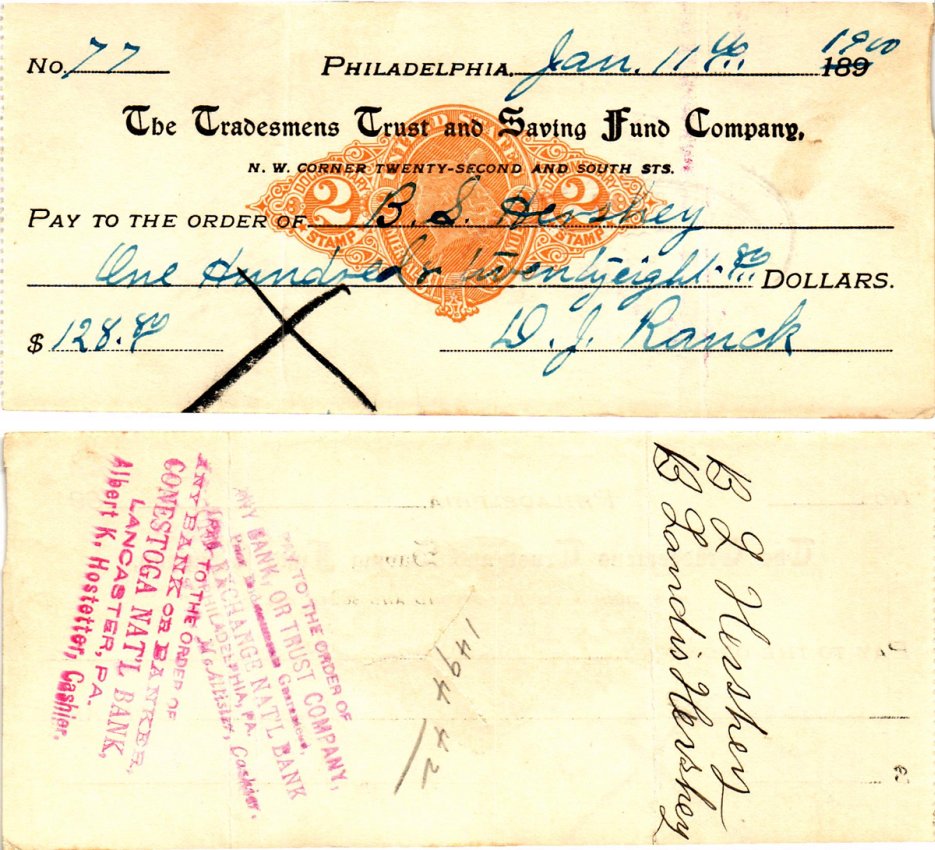 No. 77 PHILADELPHIA, Jan. 11th 1900 189
The Tradesmens Trust and Saving Fund Company,
N. W. CORNER TWENTY-SECOND AND SOUTH STS.
UNITED STATES
DOCUMENTARY 2 STAMP DOCUMENTARY 2 STAMP
PAY TO THE ORDER OF B. S. Hershey
One Hundred & twentyeight. 80 DOLLARS.
$ 128.80 D. J. Ranck
B L Hershey
B Landis Hershey
14942
PAY TO THE ORDER OF
ANY BANK, OR TRUST COMPANY,
Prior Endorsements Guaranteed,
EXCHANGE NAT'L BANK
PHILADELPHIA, PA.
McAllister, Cashier.
PAY TO THE ORDER OF
ANY BANK OR BANKER,
CONESTOGA NAT'L BANK,
LANCASTER, PA.
Albert K. Hostetter, Cashier.